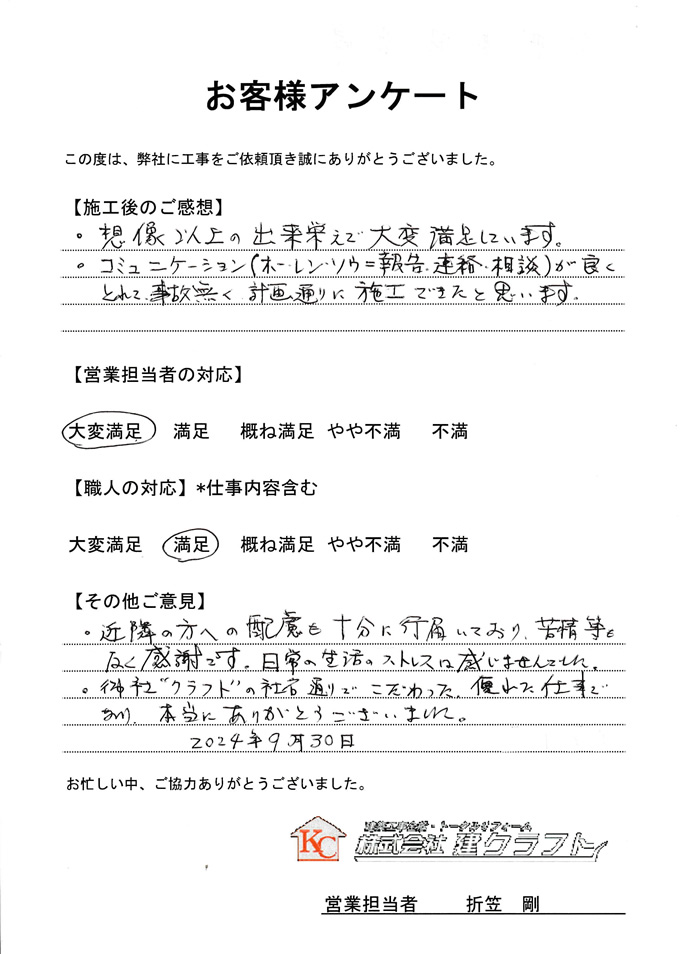 お客様アンケート
この度は、弊社に工事をご依頼頂き誠にありがとうございました。
【施工後のご感想】
・想像以上の出来栄えで大変満足しています。
・コミュニケーション(ホー・レン・ソウ=報告・連絡・相談)が良く
とれて、事故無く計画通りに施工できたと思います。
【営業担当者の対応】
大変満足 満足 概ね満足 やや不満 不満
【職人の対応】*仕事内容含む
大変満足 満足 概ね満足 やや不満 不満
【その他ご意見】
・近隣の方への配慮も十分に行届いており、苦情等も
なく感謝です。日常の生活のストレスは感じませんでした。
・御社"クラフト"の社名通りで こだわった、優れた仕事で
あり、本当にありがとうございました。
2024年9月30日
お忙しい中、ご協力ありがとうございました。
KC
建築工事全般・トータルリフォーム
株式会社 建クラフト
営業担当者 折笠 剛